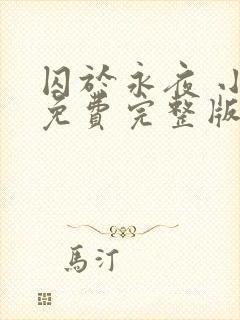 囚於永夜 小
免費完整版
馬汀